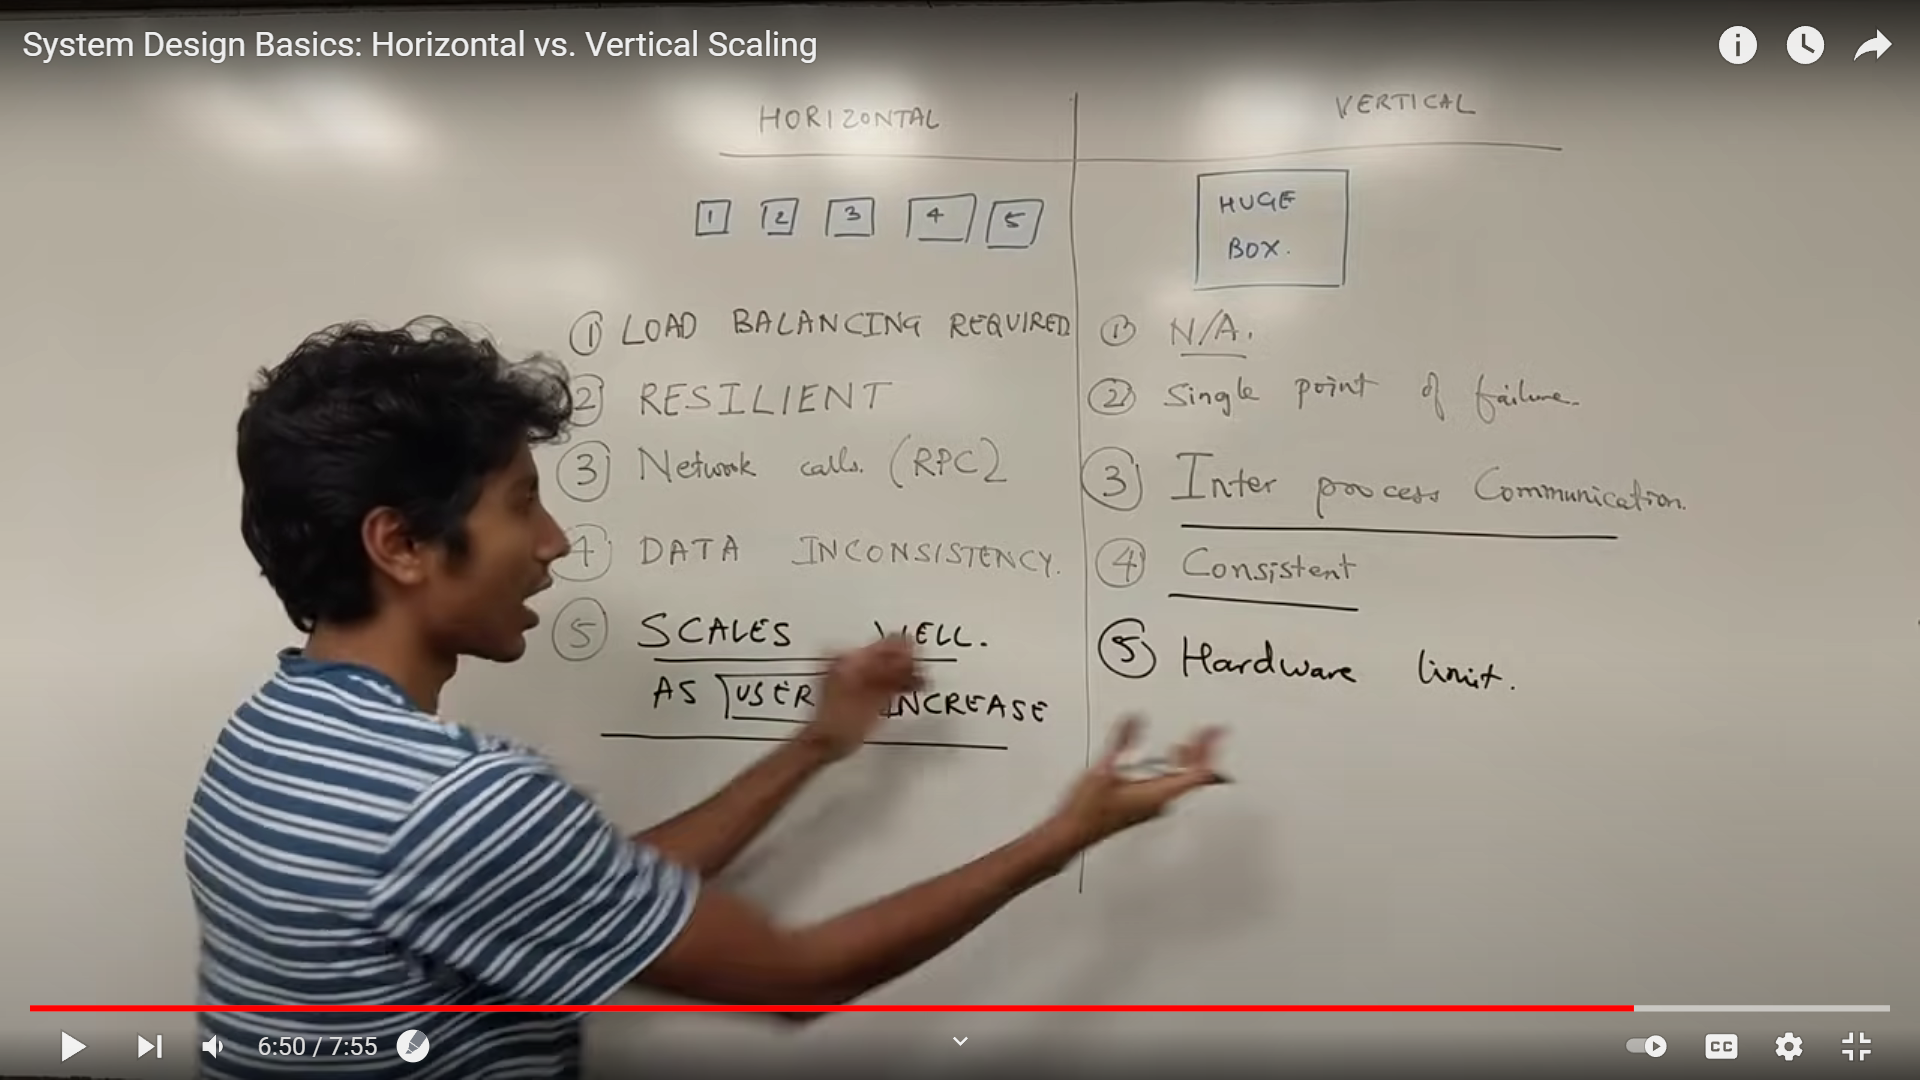 System Design Basics: Horizontal vs. Vertical Scaling
HORIZONTAL
1 2 3 4 5
1 LOAD BALANCING REQUIRED
2 RESILIENT
3 Network calls. (RPC)
4 DATA INCONSISTENCY.
5 SCALES WELL.
AS USER INCREASE
VERTICAL
HUGE
BOX.
1 N/A.
2 Single point of failure.
3 Inter process Communication.
4 Consistent
5 Hardware limit.
6:50 / 7:55
CC